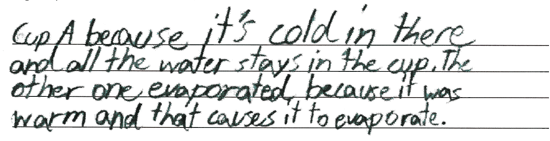 Cup A because it's cold in there
and all the water stays in the cup. The
other one evaporated, because it was
warm and that causes it to evaporate.